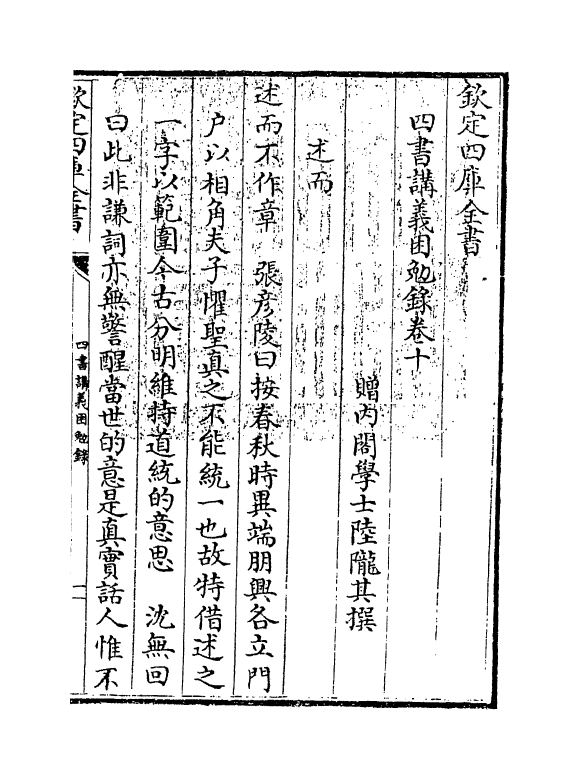 欽定四庫全書
四書講義困勉錄卷十
贈內閣學士陸隴其撰
述而
述而不作章　張彦陵曰按春秋時異端朋興各立門
户以相角夫子懼聖真之不能統一也故特借述之
一字以範圍今古分明維持道統的意思　沈無回
曰此非謙詞亦無警醒當世的意是真實話人惟不
欽定四庫全書
四書講義困勉錄
一